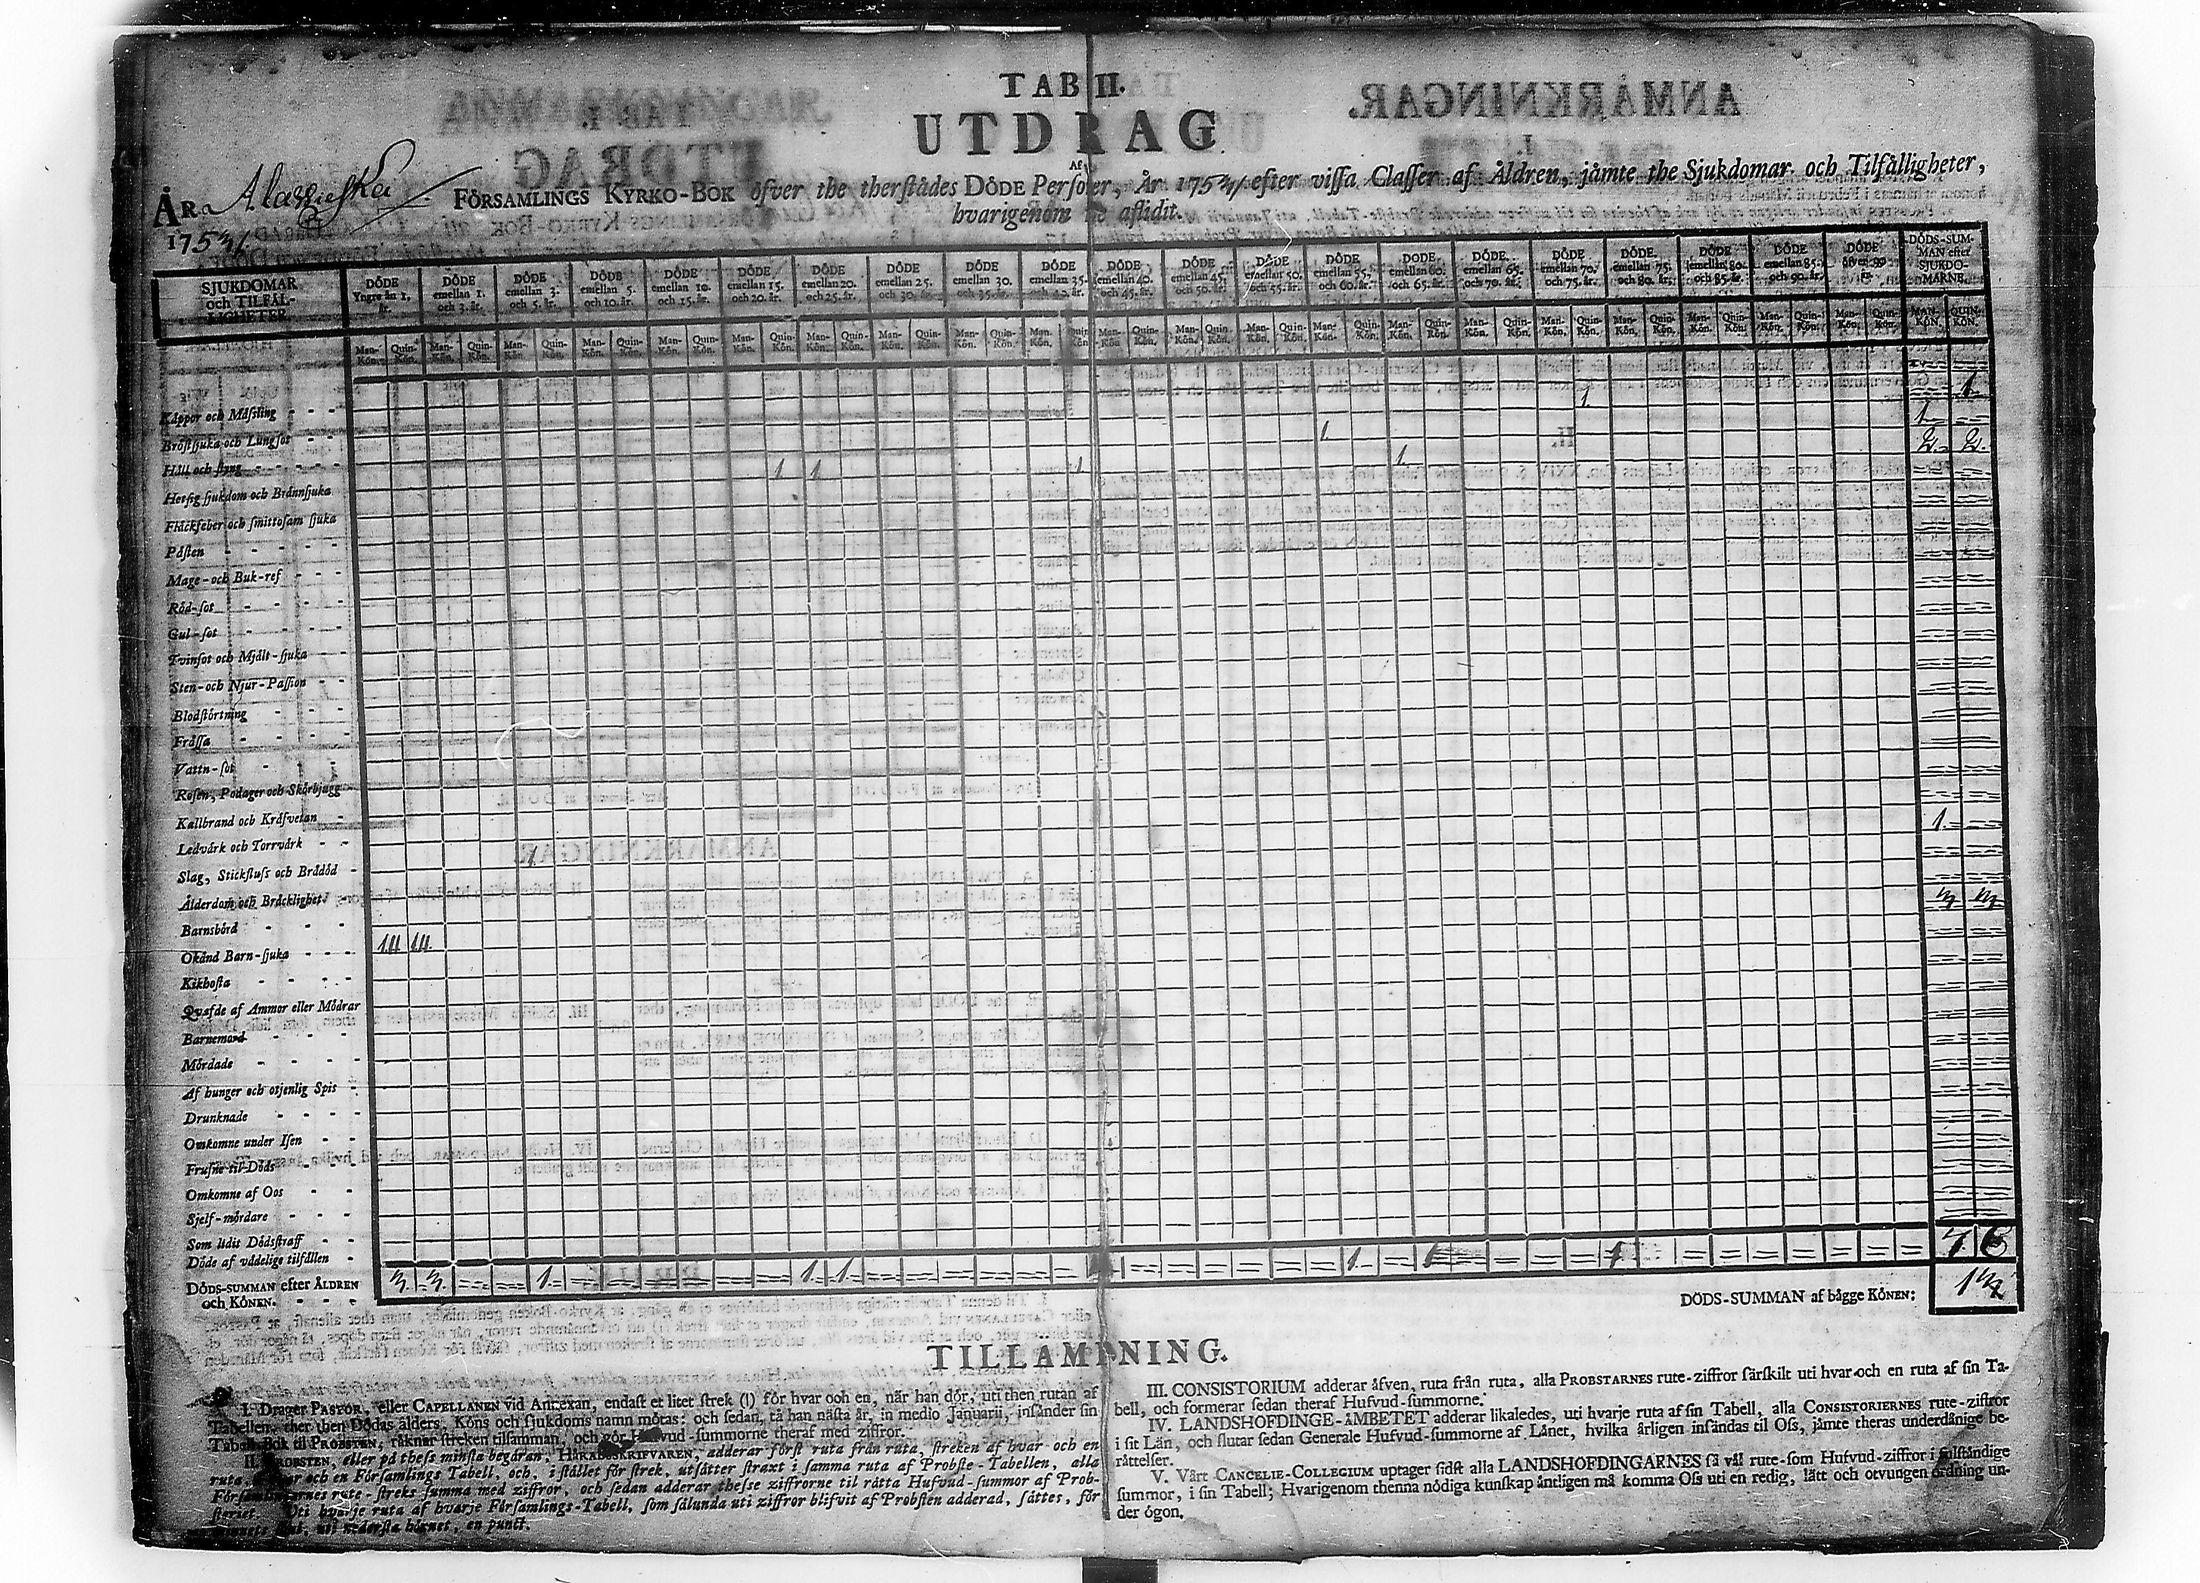 TAB II.
UTDRAG
Af
ÅR
FÖRSAMLINGS KYRKO-BOK öfver the therstådes DÖDE Personer, År 175 efter vissa Classer af Åldren, jämte the Sjukdomar och Tilfälligheter,
hvarigenom the aflidit.
175
SJUKDOMAR och TILFÄL-LIGHETER
DÖDE Yngre än 1. år.
DÖDE emellan 1. och 3. år.
DÖDE emellan 3. och 5. år.
DÖDE emellan 5. och 10. år.
DÖDE emellan 10. och 15. år.
DÖDE emellan 15. och 20. år.
DÖDE emellan 20. och 25. år.
DÖDE emellan 25. och 30. år.
DÖDE emellan 30. och 35. år.
DÖDE emellan 35. och 40. år.
DÖDE emellan 40. och 45. år.
DÖDE emellan 45. och 50. år.
DÖDE emellan 50. och 55. år.
DÖDE emellan 55. och 60. år.
DÖDE emellan 60. och 65. år.
DÖDE emellan 65. och 70. år.
DÖDE emellan 70. och 75. år.
DÖDE emellan 75. och 80. år.
DÖDE emellan 80. och 85. år.
DÖDE emellan 85. och 90. år.
DÖDE öfver 90 år.
DÖDS-SUM-MAN efter SJUKDO-MARNE.
Man-Kön. Quin-Kön. Man-Kön. Quin-Kön. Man-Kön. Quin-Kön. Man-Kön. Quin-Kön. Man-Kön. Quin-Kön. Man-Kön. Quin-Kön. Man-Kön. Quin-Kön. Man-Kön. Quin-Kön. Man-Kön. Quin-Kön. Man-Kön. Quin-Kön. Man-Kön. Quin-Kön. Man-Kön. Quin-Kön. Man-Kön. Quin-Kön. Man-Kön. Quin-Kön. Man-Kön. Quin-Kön. Man-Kön. Quin-Kön. Man-Kön. Quin-Kön. Man-Kön. Quin-Kön. Man-Kön. Quin-Kön. Man-Kön. Quin-Kön. Man-Kön. Quin-Kön. MAN-KÖN. QUIN-KÖN.
Kåppor och Mässling - - - 1 1
Bröstsjuka och Lungsot - - 1 1
Håll och styng - - - - - 1 1 1 1 2 2
Hetsig sjukdom och Brännsjuka
Fläckfeber och smittosam sjuka
Pästen - - - - -
Mage-och Buk-ref - - -
Röd-sot - - - - -
Gul-sot - - - - -
Tvinsot och Mjält-sjuka - -
Sten-och Njur-Passion - -
Blodstörtning - - - -
Frässa - - - - -
Vattn-sot - - - -
Rosen, Podager och Skörbjugg
Kallbrand och Kräfvetan -
Ledvärk och Torrvärk - -
Slag, Stickfluss och Brådöd - 1 1.
Ålderdom och Bräcklighet - -
Barnsbörd - - - -
Okänd Barn-sjuka - - - 111 111 3 3
Kikhosta - - - -
Qvafde af Ammor eller Mödrar
Barnemord - - - -
Mördade - - - -
Af hunger och otjenlig Spis -
Drunknade - - - -
Omkomne under Isen - -
Frusne til Döds - - -
Omkomne af Oos - -
Sjelf-mördare - - -
Som lidit Dödsstraff - -
Döde af vådelige tilfällen -
DÖDS-SUMMAN efter ÅLDREN och KÖNEN. - - - 3. 3. 1. 1. 1. 1. 1 1 7 6
DÖDS-SUMMAN af bägge KÖNEN: 13
TILLÄMPNING.
I. Drager PASTOR, eller CAPELLANEN vid Annexan, endast et litet strek (|) för hvar och en, när han dör, uti then rutan af
Tabellen, ther then Dödas ålders, Köns och sjukdoms namn mötas: och sedan, tå han nästa år, in medio Januarii, insänder sin
Tabell-Bok til PROBSTEN, räknar streken tilsamman, och gör Hufvud-summorne theraf med ziffror.
II. PROBSTEN, eller på thess minsta begäran, HÄRADSSKRIFVAREN, adderar först ruta från ruta, streken af hvar och en
ruta, och en Församlings Tabell, och, i stället för strek, utsätter straxt i samma ruta af Probste-Tabellen, alla
Församlingarnes rute-streks summa med ziffror, och sedan adderar thesse ziffrorne til rätta Hufvud-summor af Prob-
steriet. Uti hvarje ruta af hvarje Församlings-Tabell, som sålunda uti ziffror blifvit af Probsten adderad, sättes, för
skul, uti nedersta hörnet, en punct.
III. CONSISTORIUM adderar äfven, ruta från ruta, alla PROBSTARNES rute-ziffror särskilt uti hvar och en ruta af sin Ta-
bell, och formerar sedan theraf Hufvud-summorne.
IV. LANDSHÖFDINGE-ÄMBETET adderar likaledes, uti hvarje ruta af sin Tabell, alla CONSISTORIERNES rute-ziffror
i sit Län, och slutar sedan Generale Hufvud-summorne af Länet, hvilka årligen insändas til Oss, jämte theras underdånige be-
rättelser.
V. Vårt CANCELIE-COLLEGIUM uptager sidst alla LANDSHÖFDINGARNES så väl rute-som Hufvud-ziffror i fulständige
summor, i sin Tabell; Hvarigenom thenna nödiga kunskap äntligen må komma Oss uti en redig, lätt och otvungen ordning un-
der ögon.